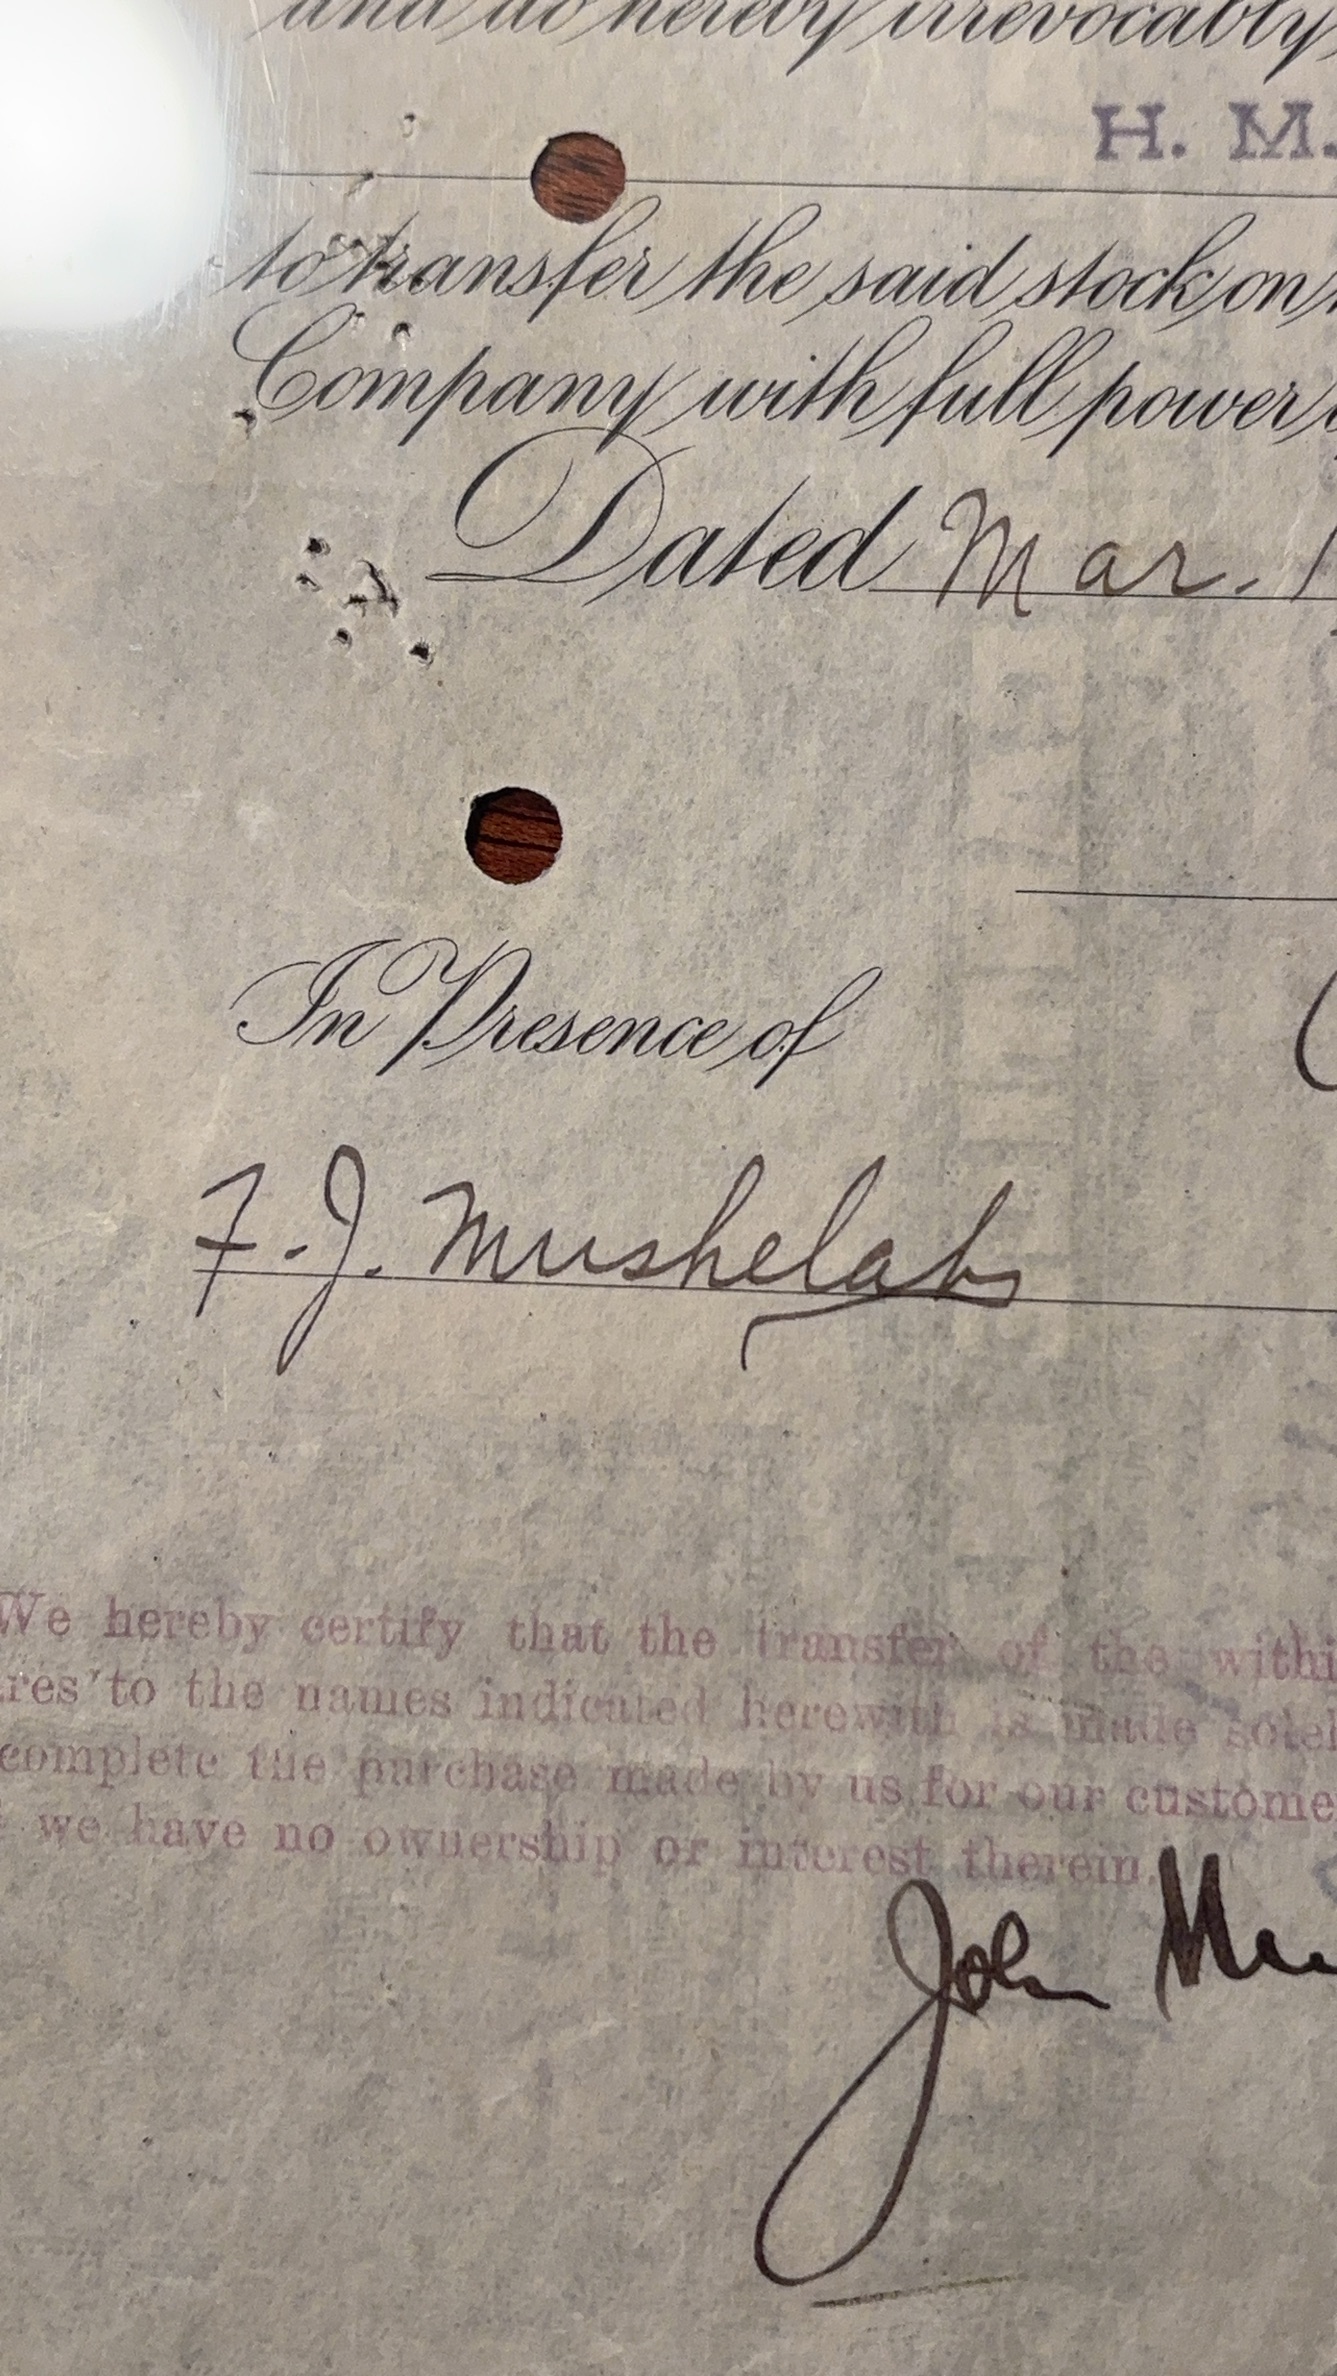 and do hereby irrevocably
H. M.
to transfer the said stock on
Company with full power
Dated Mar. 1
In Presence of
F. J. Mushelab
We hereby certify that the transfer of the withi
res to the names indicated herewith is made solel
complete the purchase made by us for our custome
we have no ownership or interest therein.
John